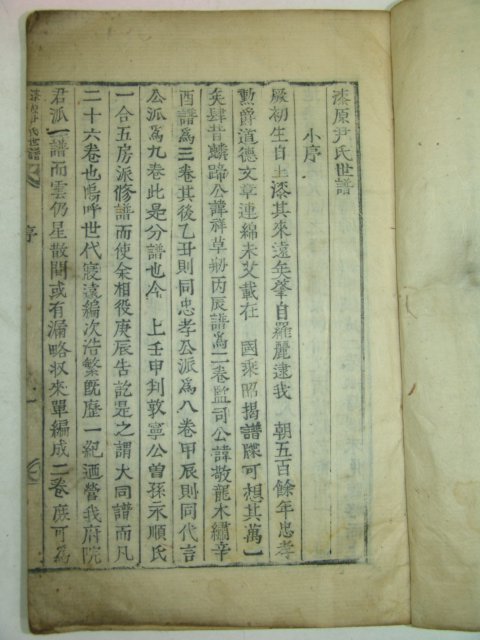 漆原尹氏世譜
小序
厥初生自土漆其來遠矣肇自羅麗逮我 朝五百餘年忠孝
勲爵道德文章連綿未艾載在 國乘昭揭譜牒可想其萬一
矣肆昔麟蹄公諱祥草刱丙辰譜爲二卷監司公諱敬龍木繡辛
酉譜爲三卷其後乙丑則同忠孝公派爲八卷甲辰則同代言
公派爲九卷此是分譜也今 上壬申判敦寧公曽孫永順氏
一合五房派修譜而使余相役庚辰告訖是之謂大同譜而凡
二十六卷也嗚呼世代寖遠編次浩繁旣歷一紀迺營我府院
君派一譜而雲仍星散間或有漏略収來單編成二卷庶可爲
漆原尹氏世譜
序